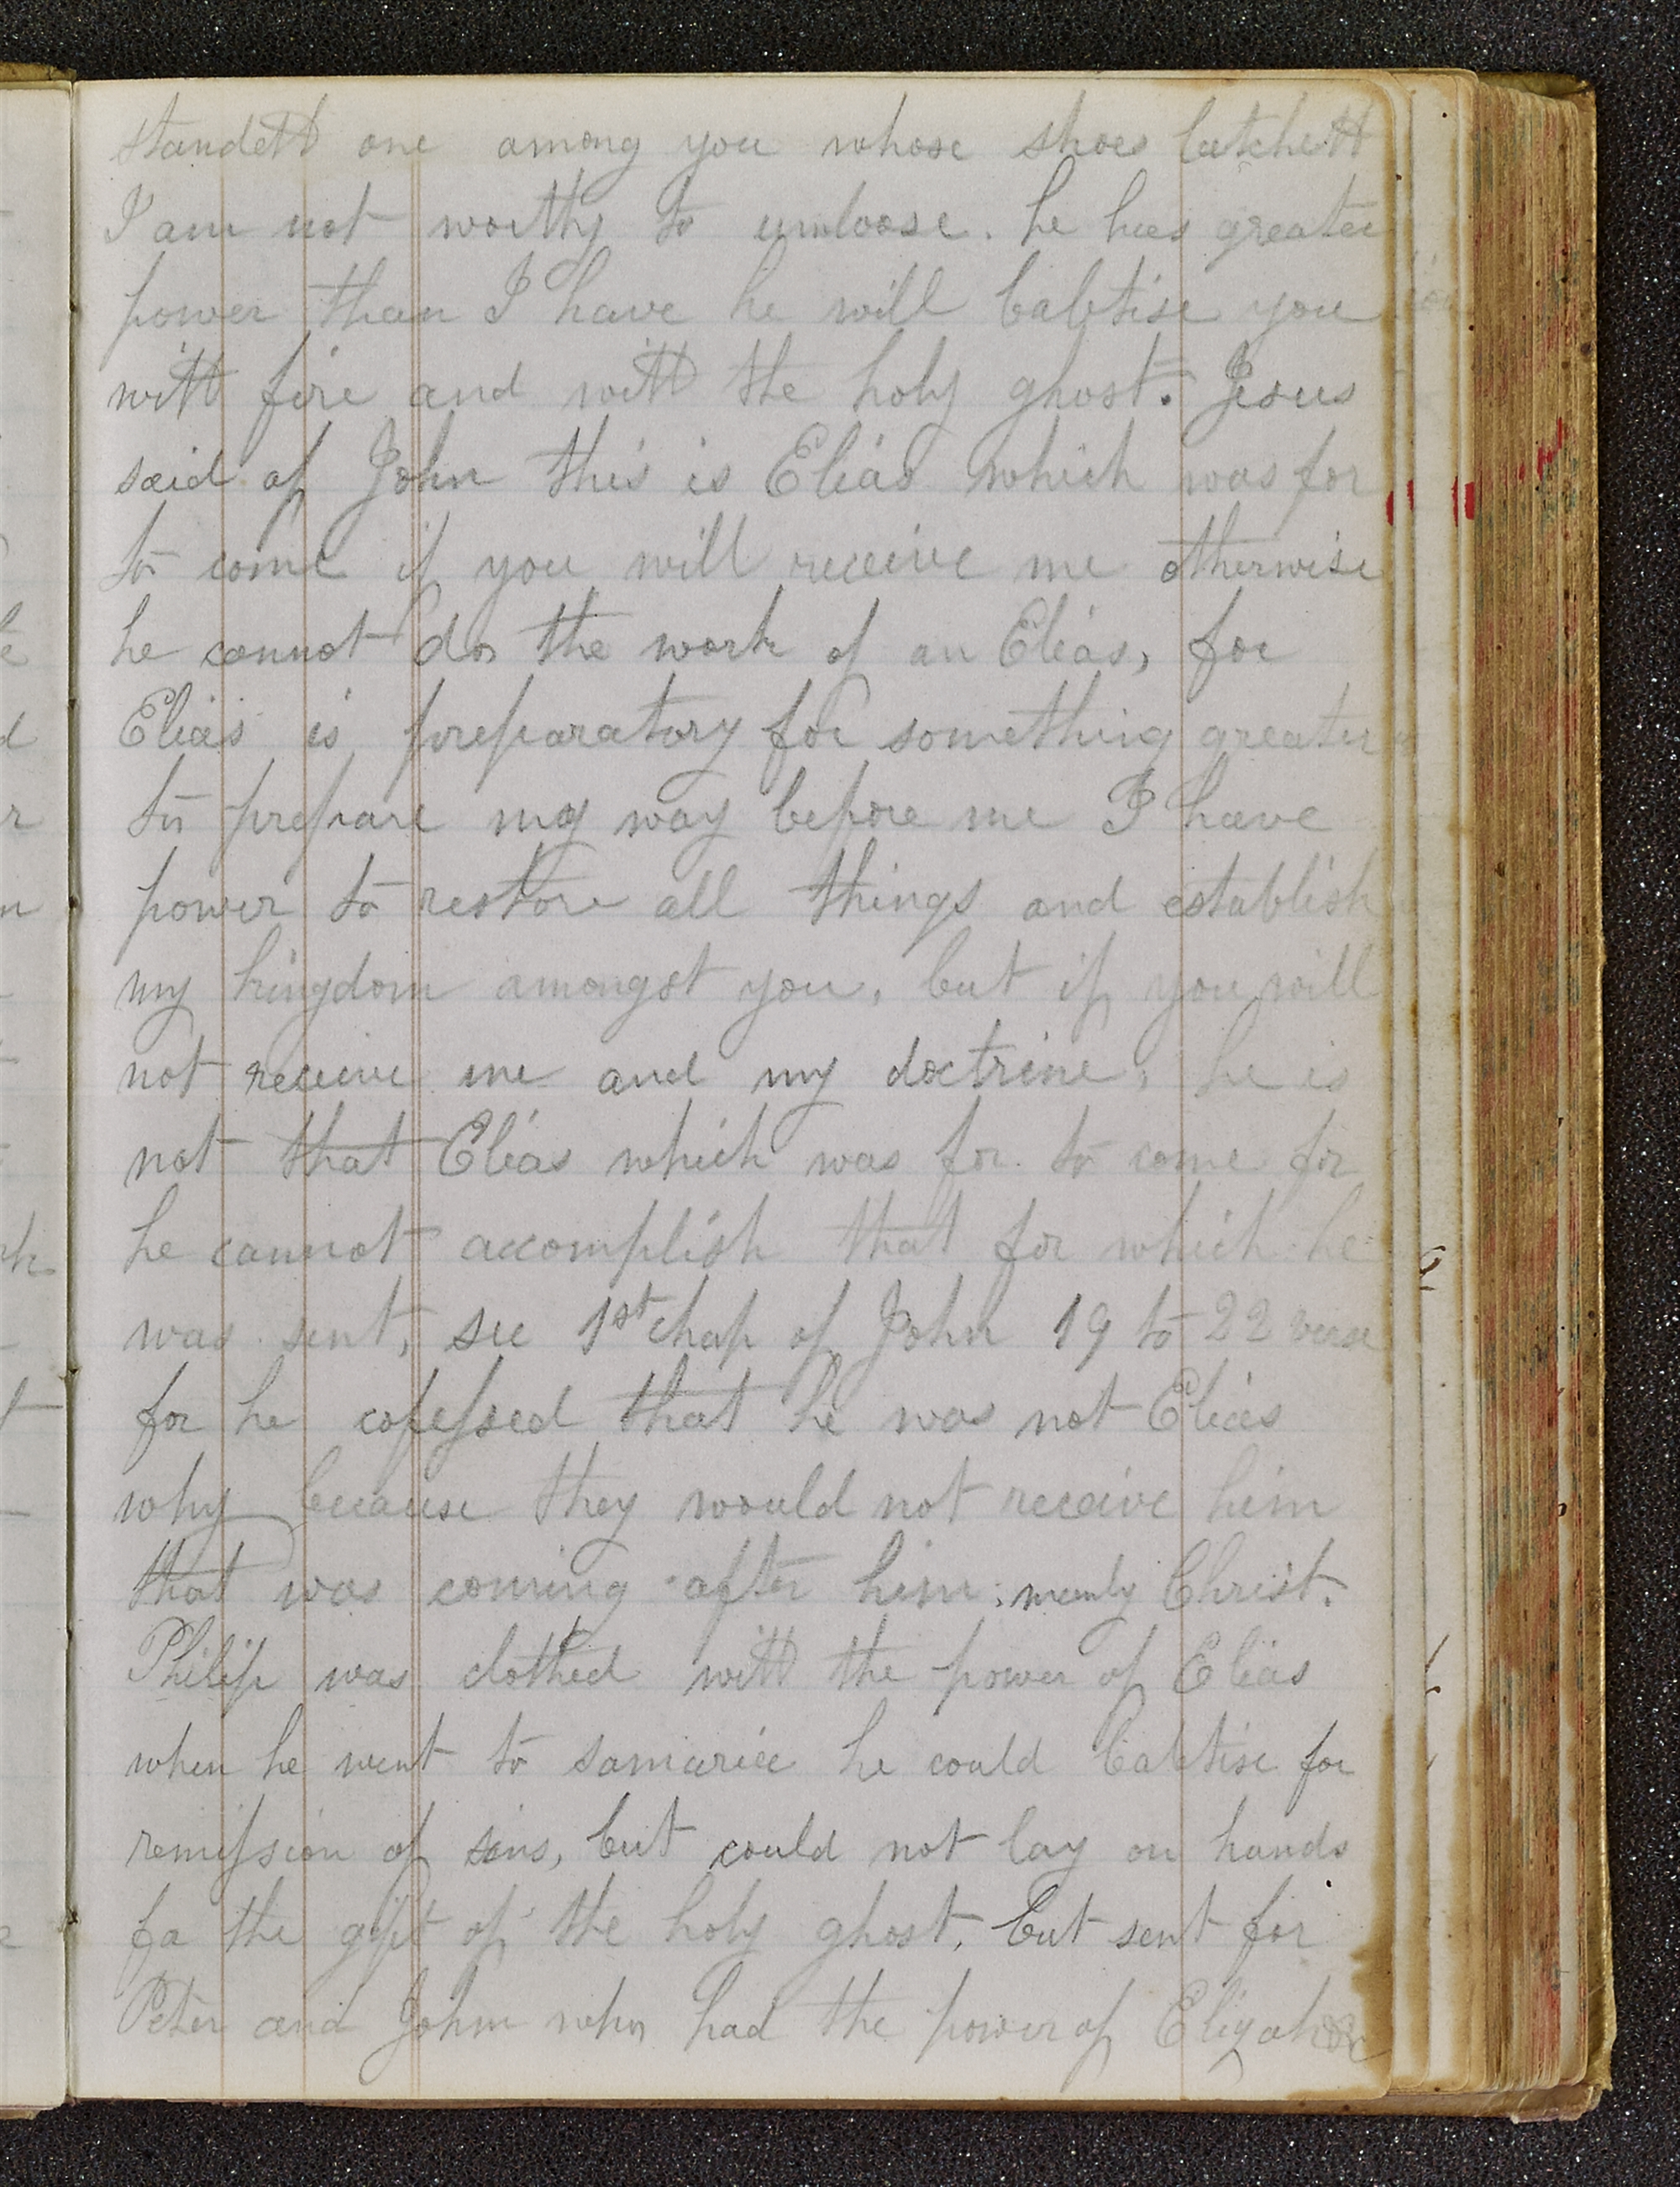 standeth one among you whose shoes latchett
I am not worthy to unloose. he has greater
power than I have he will babtise you
with fire and with the holy ghost. Jesus
said of John this is Elias which was for
to come if you will receive me otherwise
he cannot do the work of an Elias, for
Elias is preparatory for something greater
to prepare my way before me I have
power to restore all things and establish
my kingdom amongst you, but if you will
not receive me and my doctrine, he is
not that Elias which was for to come for
he cannot accomplish that for which he
was sent, see 1st chap of John 19 to 22 verse
for he cofessed that he was not Elias
why because they would not receive him
that was coming after him; Christ.
Philip was clothed with the power of Elias
when he went to samaria he could babtise for
remission of sins, but could not lay on hands
fo the gift of the holy ghost, but sent for
Peter and John who had the power of Eligah &c